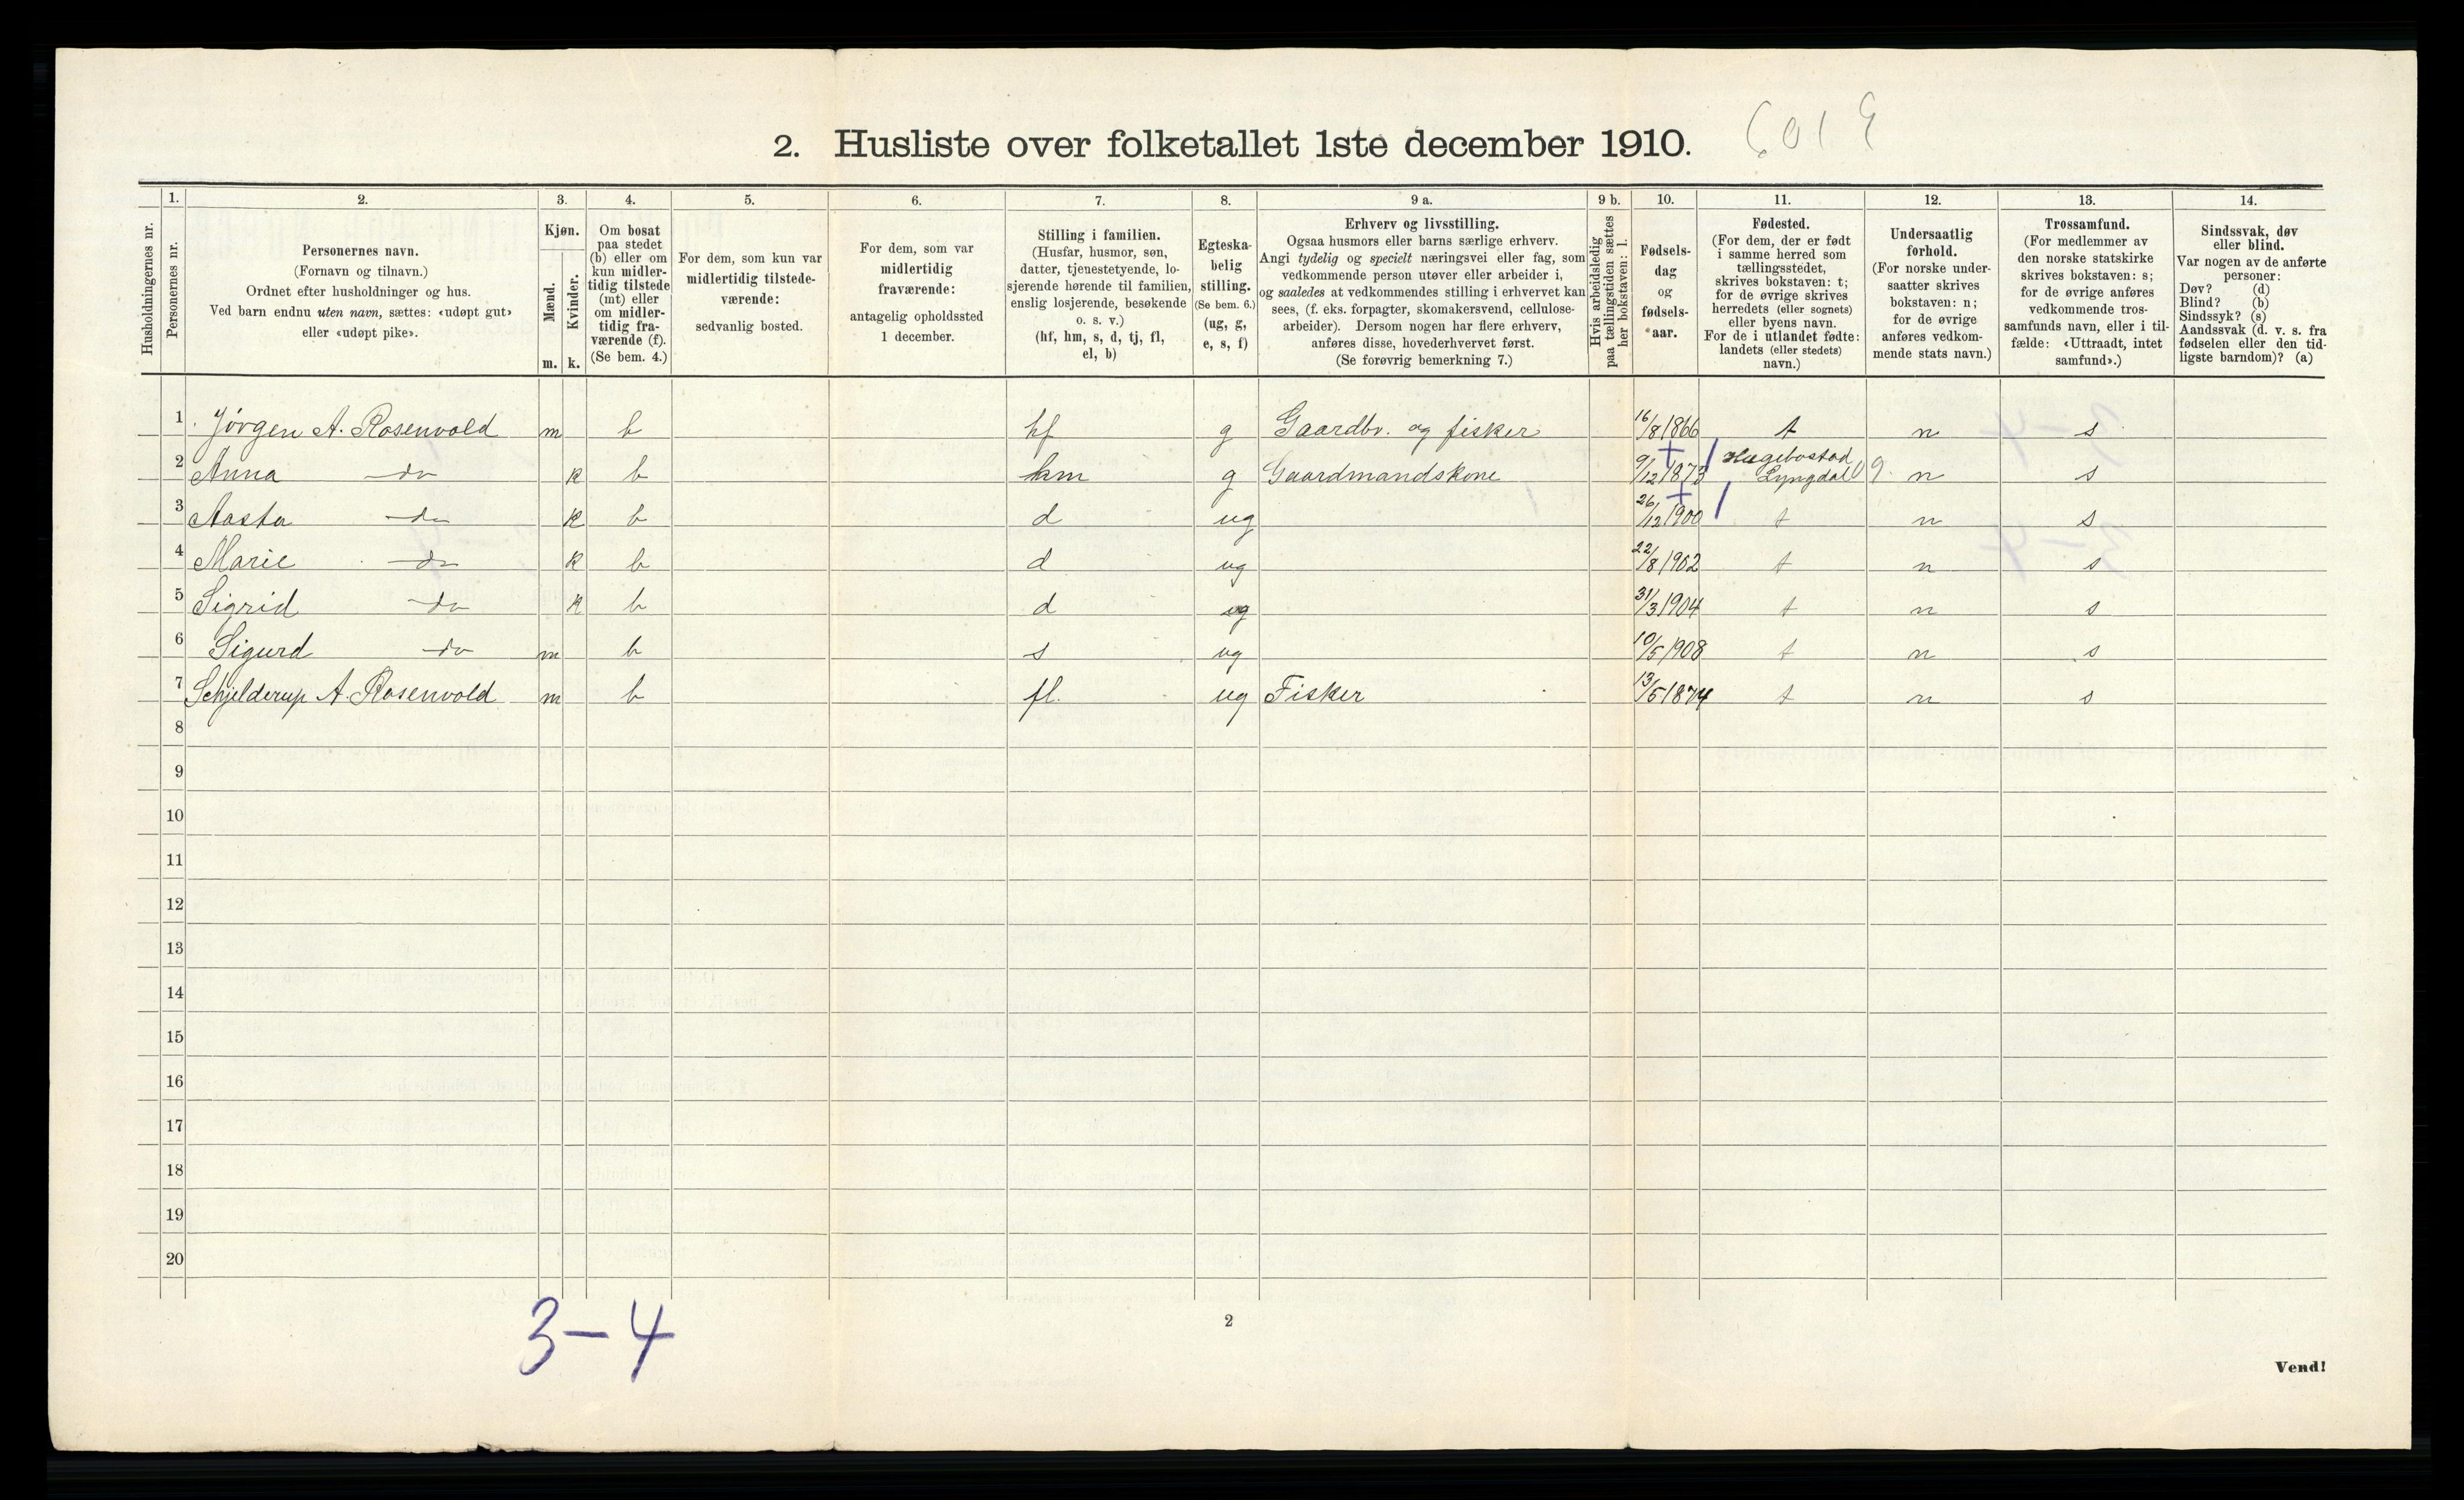 2. Husliste over folketallet 1ste december 1910.
Husholdningernes nr.
1.
Personernes nr.
2.
Personernes navn.
(Fornavn og tilnavn.)
Ordnet efter husholdninger og hus.
Ved barn endnu uten navn, sættes: «udøpt gut»
eller «udøpt pike».
3.
Kjøn.
Mænd.
Kvinder.
m. k.
4.
Om bosat
paa stedet
(b) eller om
kun midler-
tidig tilstede
(mt) eller
om midler-
tidig fra-
værende (f).
(Se bem. 4.)
5.
For dem, som kun var
midlertidig tilstede-
værende:
sedvanlig bosted.
6.
For dem, som var
midlertidig
fraværende:
antagelig opholdssted
1 december.
7.
Stilling i familien.
(Husfar, husmor, søn,
datter, tjenestetyende, lo-
sjerende hørende til familien,
enslig losjerende, besøkende
o. s. v.)
(hf, hm, s, d, tj, fl,
el, b)
8.
Egteska-
belig
stilling.
(Se bem. 6.)
(ug, g,
e, s, f)
9 a.
Erhverv og livsstilling.
Ogsaa husmors eller barns særlige erhverv.
Angi tydelig og specielt næringsvei eller fag, som
vedkommende person utøver eller arbeider i,
og saaledes at vedkommendes stilling i erhvervet kan
sees, (f. eks. forpagter, skomakersvend, cellulose-
arbeider). Dersom nogen har flere erhverv,
anføres disse, hovederhvervet først.
(Se forøvrig bemerkning 7.)
9 b.
Hvis arbeidsledig
paa tællingstiden sættes
her bokstaven: l.
10.
Fødsels-
dag
og
fødsels-
aar.
11.
Fødested.
(For dem, der er født
i samme herred som
tællingsstedet,
skrives bokstaven: t;
for de øvrige skrives
herredets (eller sognets)
eller byens navn.
For de i utlandet fødte:
landets (eller stedets)
navn.)
12.
Undersaatlig
forhold.
(For norske under-
saatter skrives
bokstaven: n;
for de øvrige
anføres vedkom-
mende stats navn.)
13.
Trossamfund.
(For medlemmer av
den norske statskirke
skrives bokstaven: s;
for de øvrige anføres
vedkommende tros-
samfunds navn, eller i til-
fælde: «Uttraadt, intet
samfund».)
14.
Sindssvak, døv
eller blind.
Var nogen av de anførte
personer:
Døv? (d)
Blind? (b)
Sindssyk? (s)
Aandssvak (d. v. s. fra
fødselen eller den tid-
ligste barndom)? (a)
1 Jørgen A. Rosenvold m b hf g Gaardbr. og fisker 16/8 1866 t n s
2 Anna do k b hm g Gaardmandskone 9/12 1873 Hægebostad Lyngdal n s
3 Aasta do k b d ug 26/12 1900 t n s
4 Marie do k b d ug 22/8 1902 t n s
5 Sigrid do k b d ug 31/3 1904 t n s
6 Sigurd do m b s ug 10/5 1908 t n s
7 Schjelderup A. Rosenvold m b fl. ug Fisker 13/5 1874 t n s
8
9
10
11
12
13
14
15
16
17
18
19
20
3-4
2
Vend!